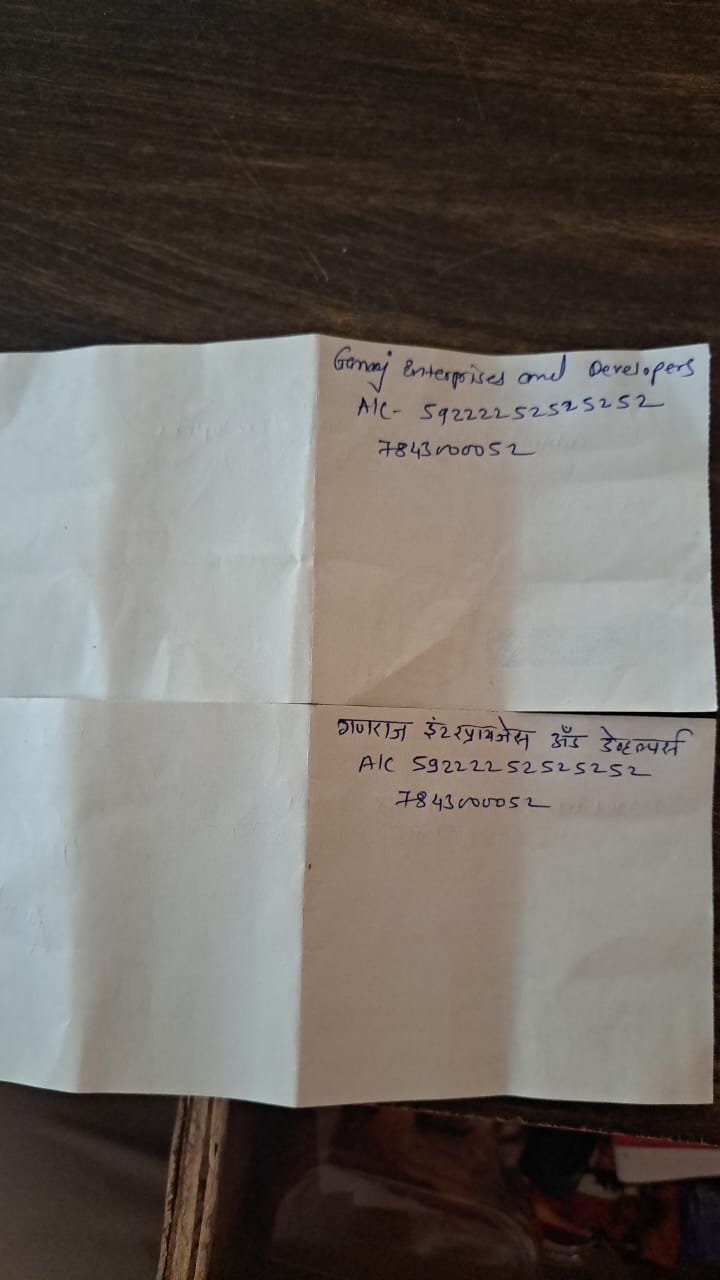 Ganraj Enterprises and Developers
A/C- 59222252525252
7843000052
गणराज इंटरप्रायजेस अँड डेव्हलपर्स
A/C 59222252525252
7843000052